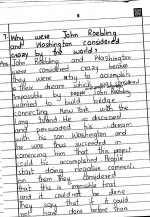 7. Why were John Roebling
and Washington considered
crazy by the world?
Ans. John Roebling and Washington
were considered crazy because
they were to accomplish
their dream which was considered
impossible by people. John Roebling
wanted to build bridge
connecting New York with the
Long Island. He discussed
and persuaded his dream
with his son Washington and
he was thus succeeded in
convincing him that this project
could be accomplished. People
start doing negative comment
on them. They considered
that this is impossible feat
and it could not be done
They say that if it could
not have done before than